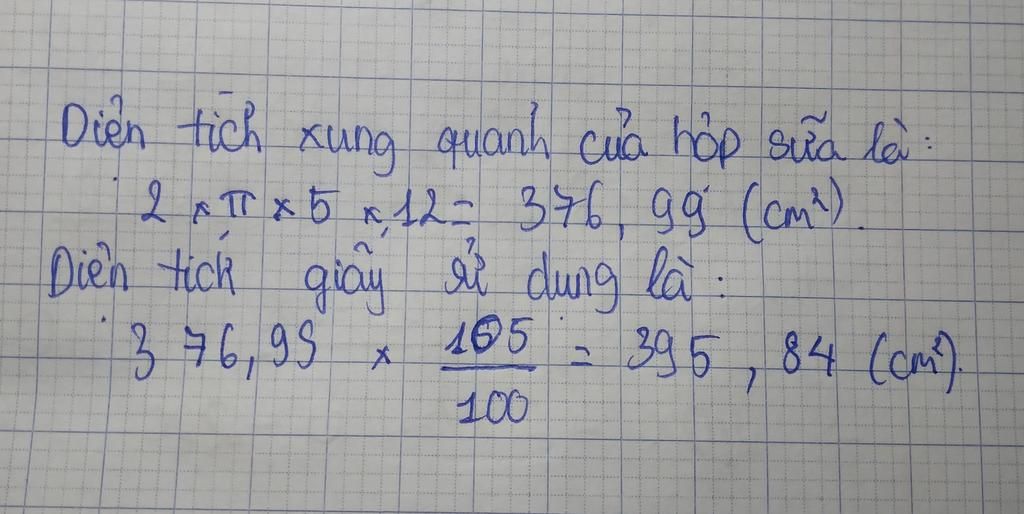 Diện tích xung quanh của hộp sữa là:
2 × π × 5 × 12 = 376,99 (cm²).
Diện tích giấy sử dụng là:
376,99 × 105/100 = 395,84 (cm²).